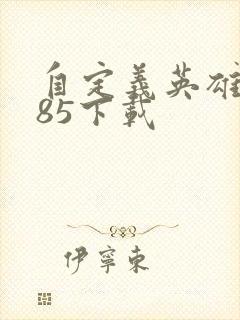 自定義英雄
85下載
伊寧東